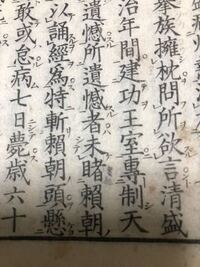 擧族擁枕問所欲言淸盛
治年間建功王室專制天
遺憾所遺憾者未睹賴朝
以誦經爲特斬賴朝頭懸
敢或怠病七日薨歲六十